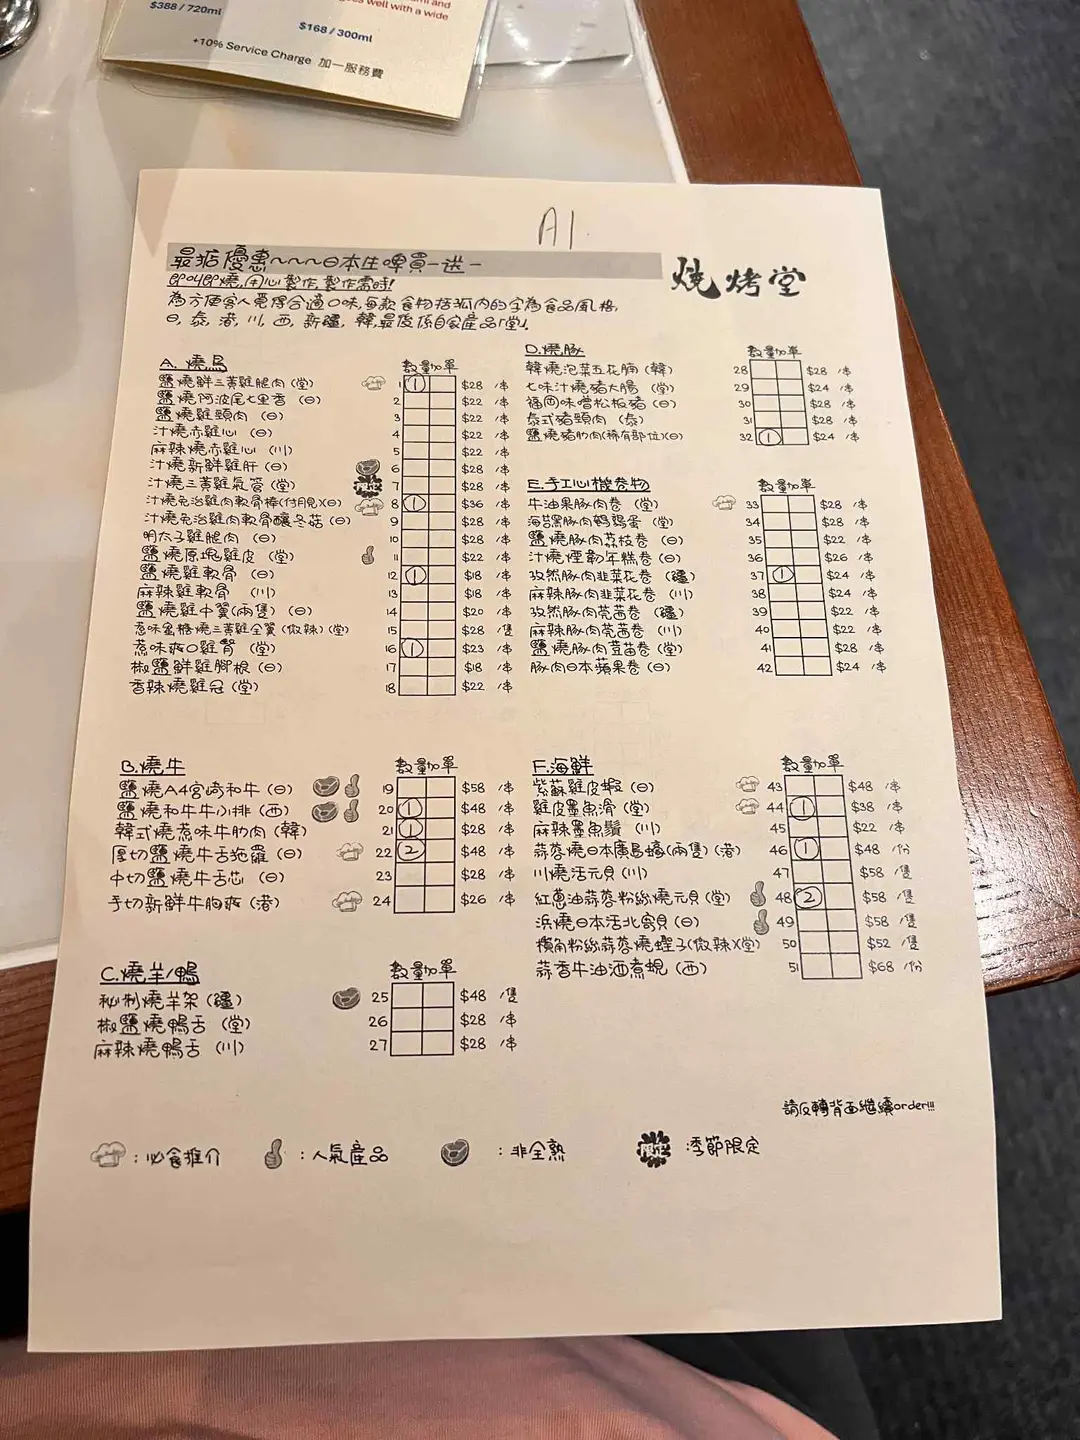 $388 / 720ml
goes well with a wide
$168 / 300ml
+10% Service Charge 加一服務費
A1
最筎優惠~~~日本生啤買一送一
即叫即燒,用心製作,製作需時!
為方便客人覓得合適口味,每款食物括弧內的字為食品風格,
日,泰,港,川,西,新疆,韓,最後係自家產品「堂」.
燒烤堂
A. 燒鳥 數量 加單
鹽燒鮮三黃雞腿肉 (堂) 1 ① $28 /串
鹽燒阿波尾七里香 (日) 2 $22 /串
鹽燒雞頸肉 (日) 3 $22 /串
汁燒赤雞心 (日) 4 $22 /串
麻辣燒赤雞心 (川) 5 $22 /串
汁燒新鮮雞肝 (日) 6 $28 /串
汁燒三黃雞氣管 (堂) 限定 7 $28 /串
汁燒免治雞肉軟骨棒(付月見)(日) 8 ① $36 /串
汁燒免治雞肉軟骨釀冬菇 (日) 9 $28 /串
明太子雞腿肉 (日) 10 $28 /串
鹽燒原塊雞皮 (堂) 11 $22 /串
鹽燒雞軟骨 (日) 12 ① $18 /串
麻辣雞軟骨 (川) 13 $18 /串
鹽燒雞中翼(兩隻) (日) 14 $20 /串
惹味蜜糖燒三黃雞全翼(微辣)(堂) 15 $28 /隻
惹味爽口雞腎 (堂) 16 ① $23 /串
椒鹽鮮雞腳根 (日) 17 $18 /串
香辣燒雞冠 (堂) 18 $22 /串
B. 燒牛 數量 加單
鹽燒A4宮崎和牛 (日) 19 $58 /串
鹽燒和牛牛小排 (西) 20 ① $48 /串
韓式燒惹味牛肋肉 (韓) 21 ① $28 /串
厚切鹽燒牛舌拖羅 (日) 22 ② $48 /串
中切鹽燒牛舌芯 (日) 23 $28 /串
手切新鮮牛胸爽 (港) 24 $26 /串
C. 燒羊/鴨 數量 加單
秘制燒羊架 (疆) 25 $48 /隻
椒鹽燒鴨舌 (堂) 26 $28 /串
麻辣燒鴨舌 (川) 27 $28 /串
D. 燒豚 數量 加單
韓燒泡菜五花腩 (韓) 28 $28 /串
七味汁燒豬大腸 (堂) 29 $24 /串
福岡味噌松板豬 (日) 30 $28 /串
泰式豬頸肉 (泰) 31 $28 /串
鹽燒豬肋肉(稀有部位)(日) 32 ① $24 /串
E. 手工心機卷物 數量 加單
牛油果豚肉卷 (堂) 33 $28 /串
海苔黑豚肉鵪鶉蛋 (堂) 34 $28 /串
鹽燒豚肉荔枝卷 (日) 35 $22 /串
汁燒煙韌年糕卷 (日) 36 $26 /串
孜然豚肉韭菜花卷 (疆) 37 ① $24 /串
麻辣豚肉韭菜花卷 (川) 38 $24 /串
孜然豚肉芫茜卷 (疆) 39 $22 /串
麻辣豚肉芫茜卷 (川) 40 $22 /串
鹽燒豚肉萱苗卷 (堂) 41 $28 /串
豚肉日本蘋果卷 (日) 42 $24 /串
F. 海鮮 數量 加單
紫蘇雞皮蝦 (日) 43 $48 /串
雞皮墨魚滑 (堂) 44 ① $38 /串
麻辣墨魚鬚 (川) 45 $22 /串
蒜蓉燒日本廣島蠔(兩隻) (港) 46 ① $48 /份
川燒活元貝 (川) 47 $58 /隻
紅蔥油蒜蓉粉絲燒元貝 (堂) 48 ② $58 /隻
浜燒日本活北寄貝 (日) 49 $58 /隻
欖角粉絲蒜蓉燒蟶子(微辣)(堂) 50 $52 /隻
蒜香牛油酒煮蜆 (西) 51 $68 /份
請反轉背面繼續order!!!
:必食推介 :人氣產品 :非全熟 限定 :季節限定